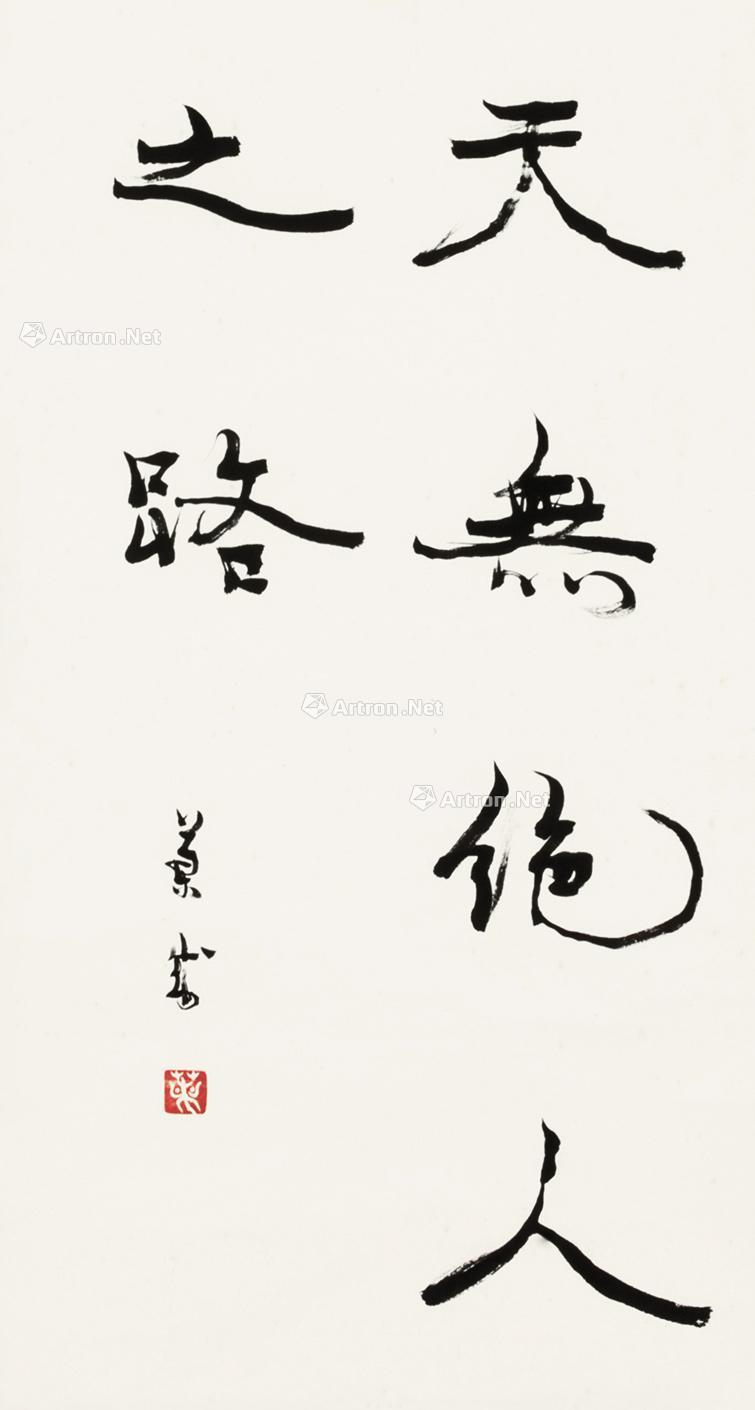 天無絕人
之路
Artron.Net
Artron.Net
Artron.Net